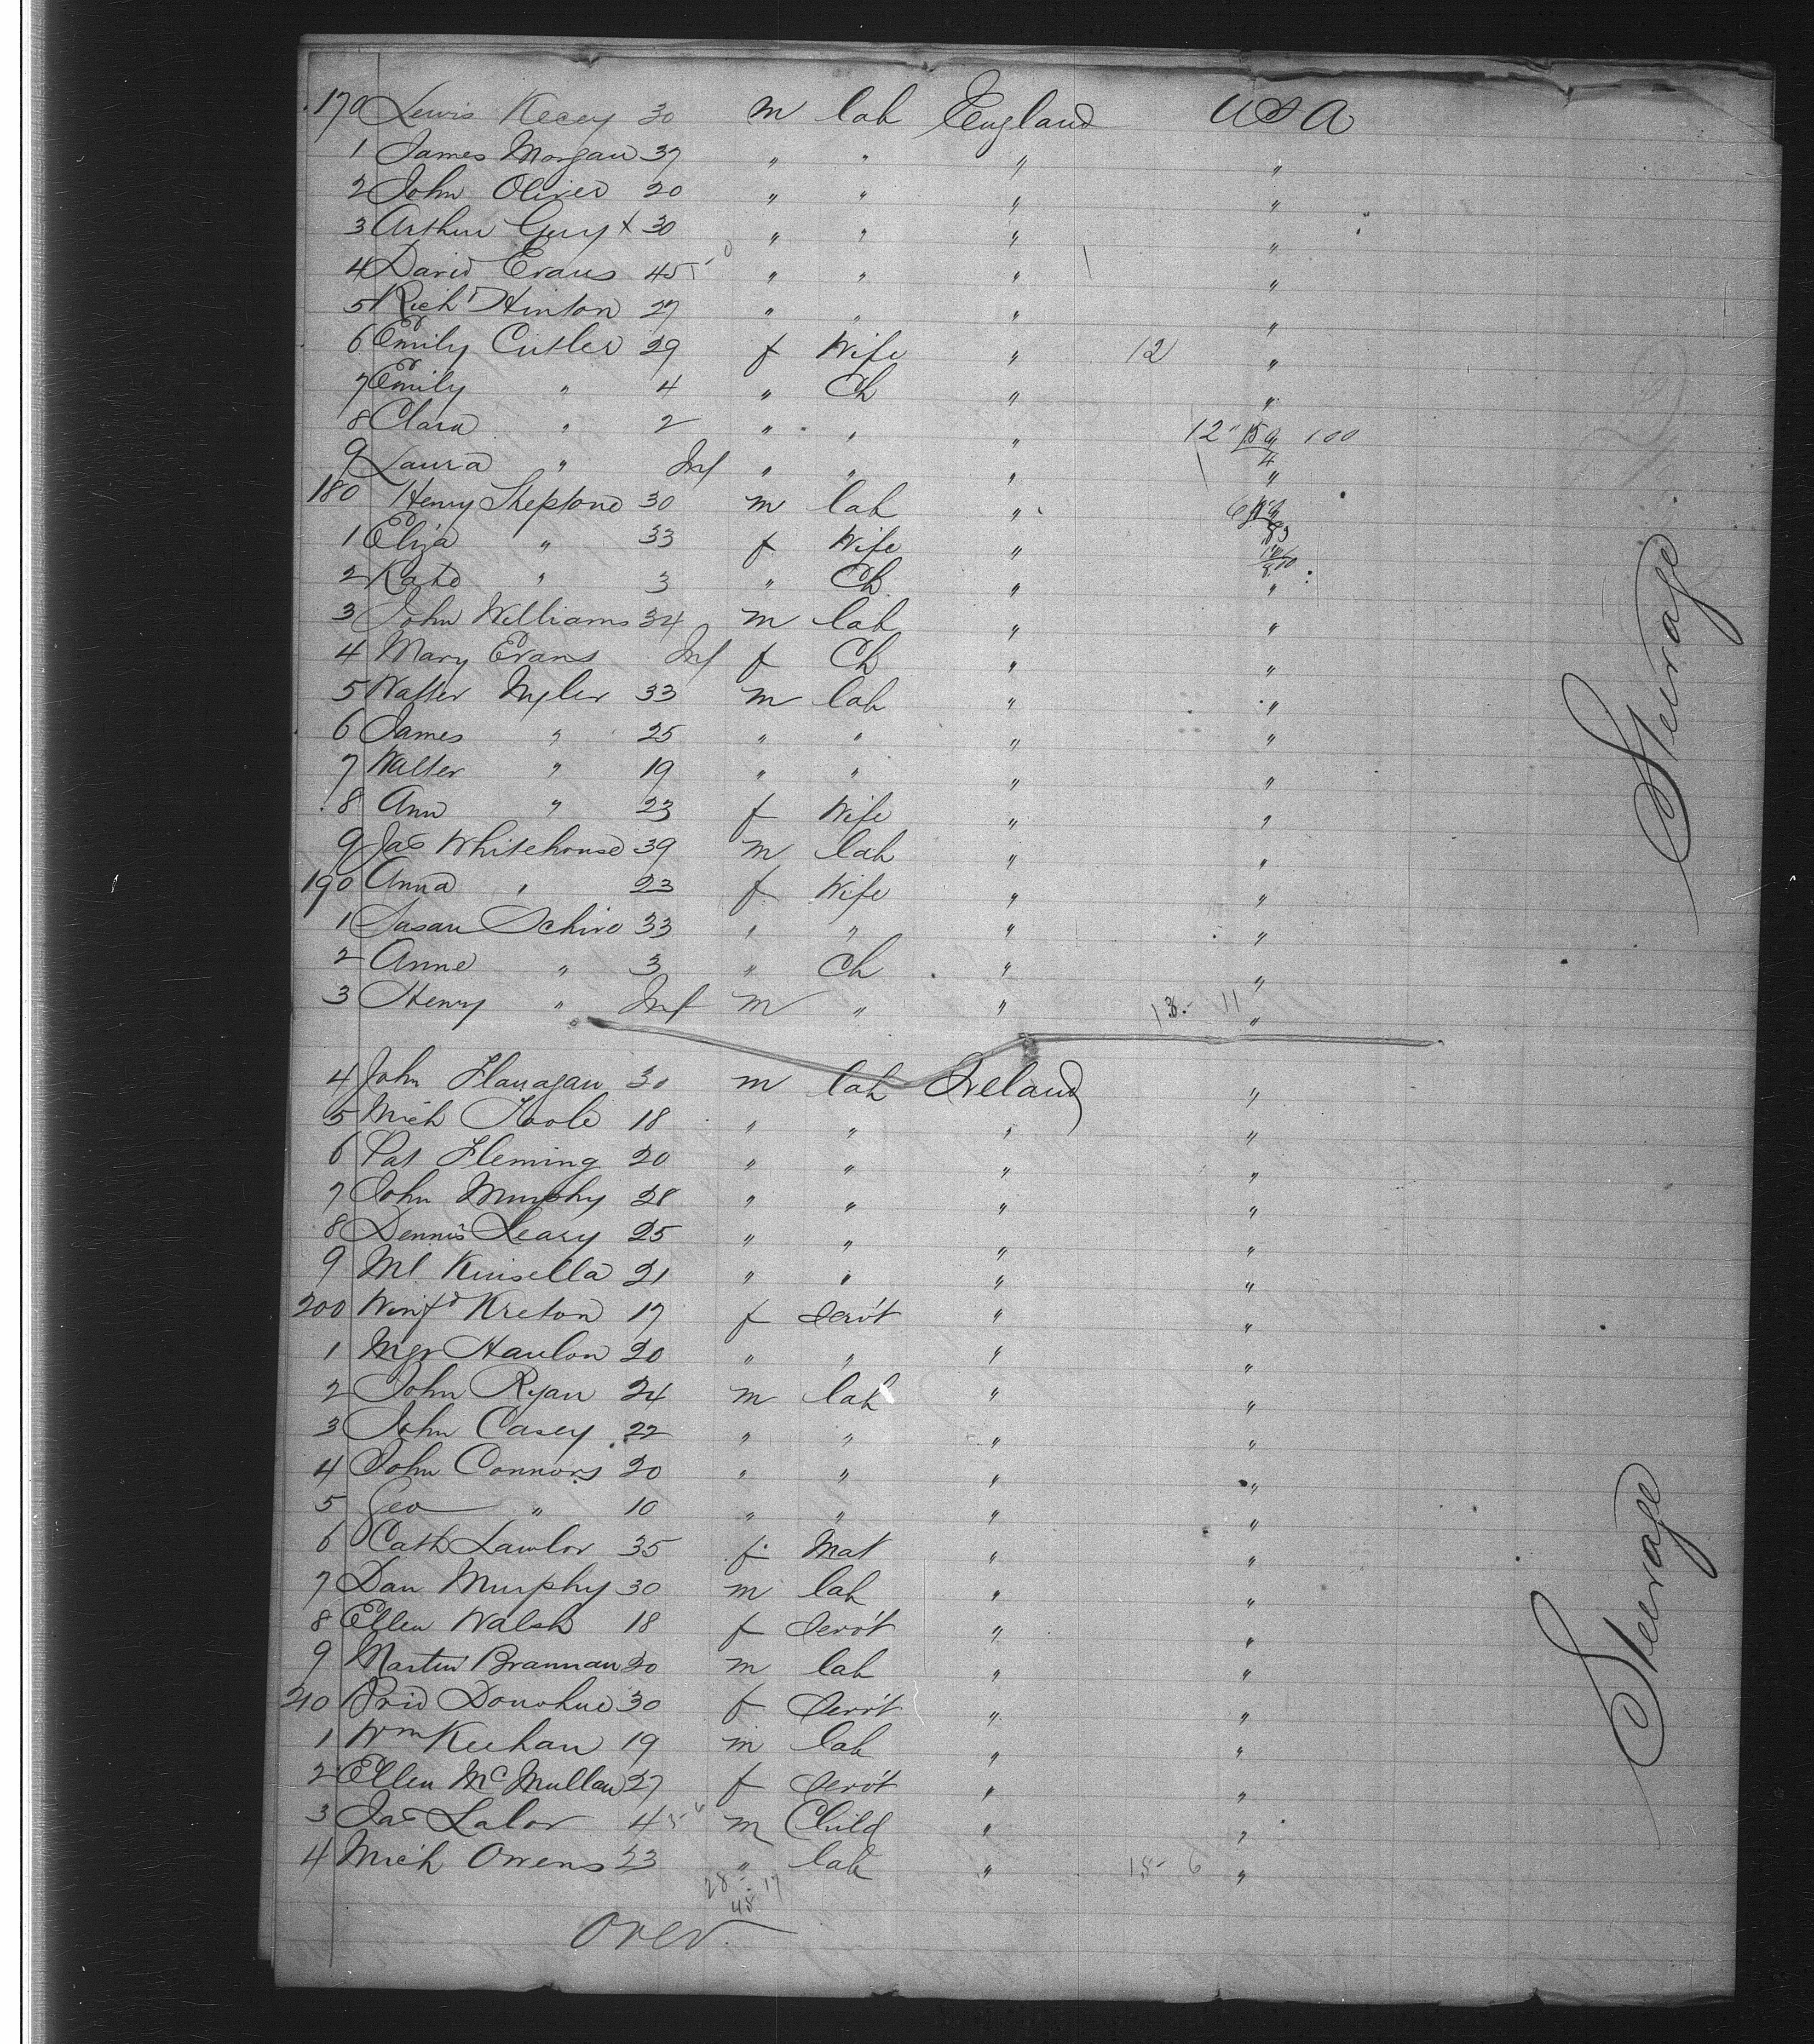 170 Lewis Kecey 30 m lab England USA
1 James Morgan 37 " " " "
2 John Oliver 20 " " " "
3 Arthur Gery x 30 " " " "
4 David Evans 45 " " " "
5 Richd Hinton 27 " " " "
6 Emily Cutler 29 f Wife " 12 "
7 Emily " 4 " Ch " "
8 Clara " 2 " " " 12 " 100
9 Laura " Inf " " " "
180 Henry Sheptone 30 m lab "
1 Eliza " 33 f Wife "
2 Kate " 3 " Ch " "
3 John Williams 34 m lab " "
4 Mary Evans Inf f Ch " "
5 Walter Myler 33 m lab " "
6 James " 25 " " " "
7 Walter " 19 " " " "
8 Ann " 23 f Wife " "
9 Jas Whitehouse 39 m lab " "
190 Anna " 23 f Wife " "
1 Susan Schire 33 " " " "
2 Anne " 3 " Ch " "
3 Henry " Inf m " " 13 - 11 "
4 John Flanagan 30 m lab Ireland "
5 Mich Toole 18 " " " "
6 Pat Fleming 20 " " " "
7 John Murphy 28 " " " "
8 Dennis Leary 25 " " " "
9 Ml Kinsella 21 " " " "
200 Winfd Kreton 17 f Servt " "
1 Mgr Hanlon 20 " " " "
2 John Ryan 24 m lab " "
3 John Casey 22 " " " "
4 John Connors 20 " " " "
5 Geo " 10 " " " "
6 Cath Lawlor 35 f Mat " "
7 Dan Murphy 30 m lab " "
8 Ellen Walsh 18 f Servt " "
9 Martin Brannan 20 m lab " "
210 Brid Donohue 30 f Servt " "
1 Wm Keehan 19 m lab " "
2 Ellen McMullan 27 f Servt " "
3 Jas Lalor 4 m Child " "
4 Mich Owens 23 " lab " 15 - 6 "
28 - 17
45
over
Steerage
Steerage